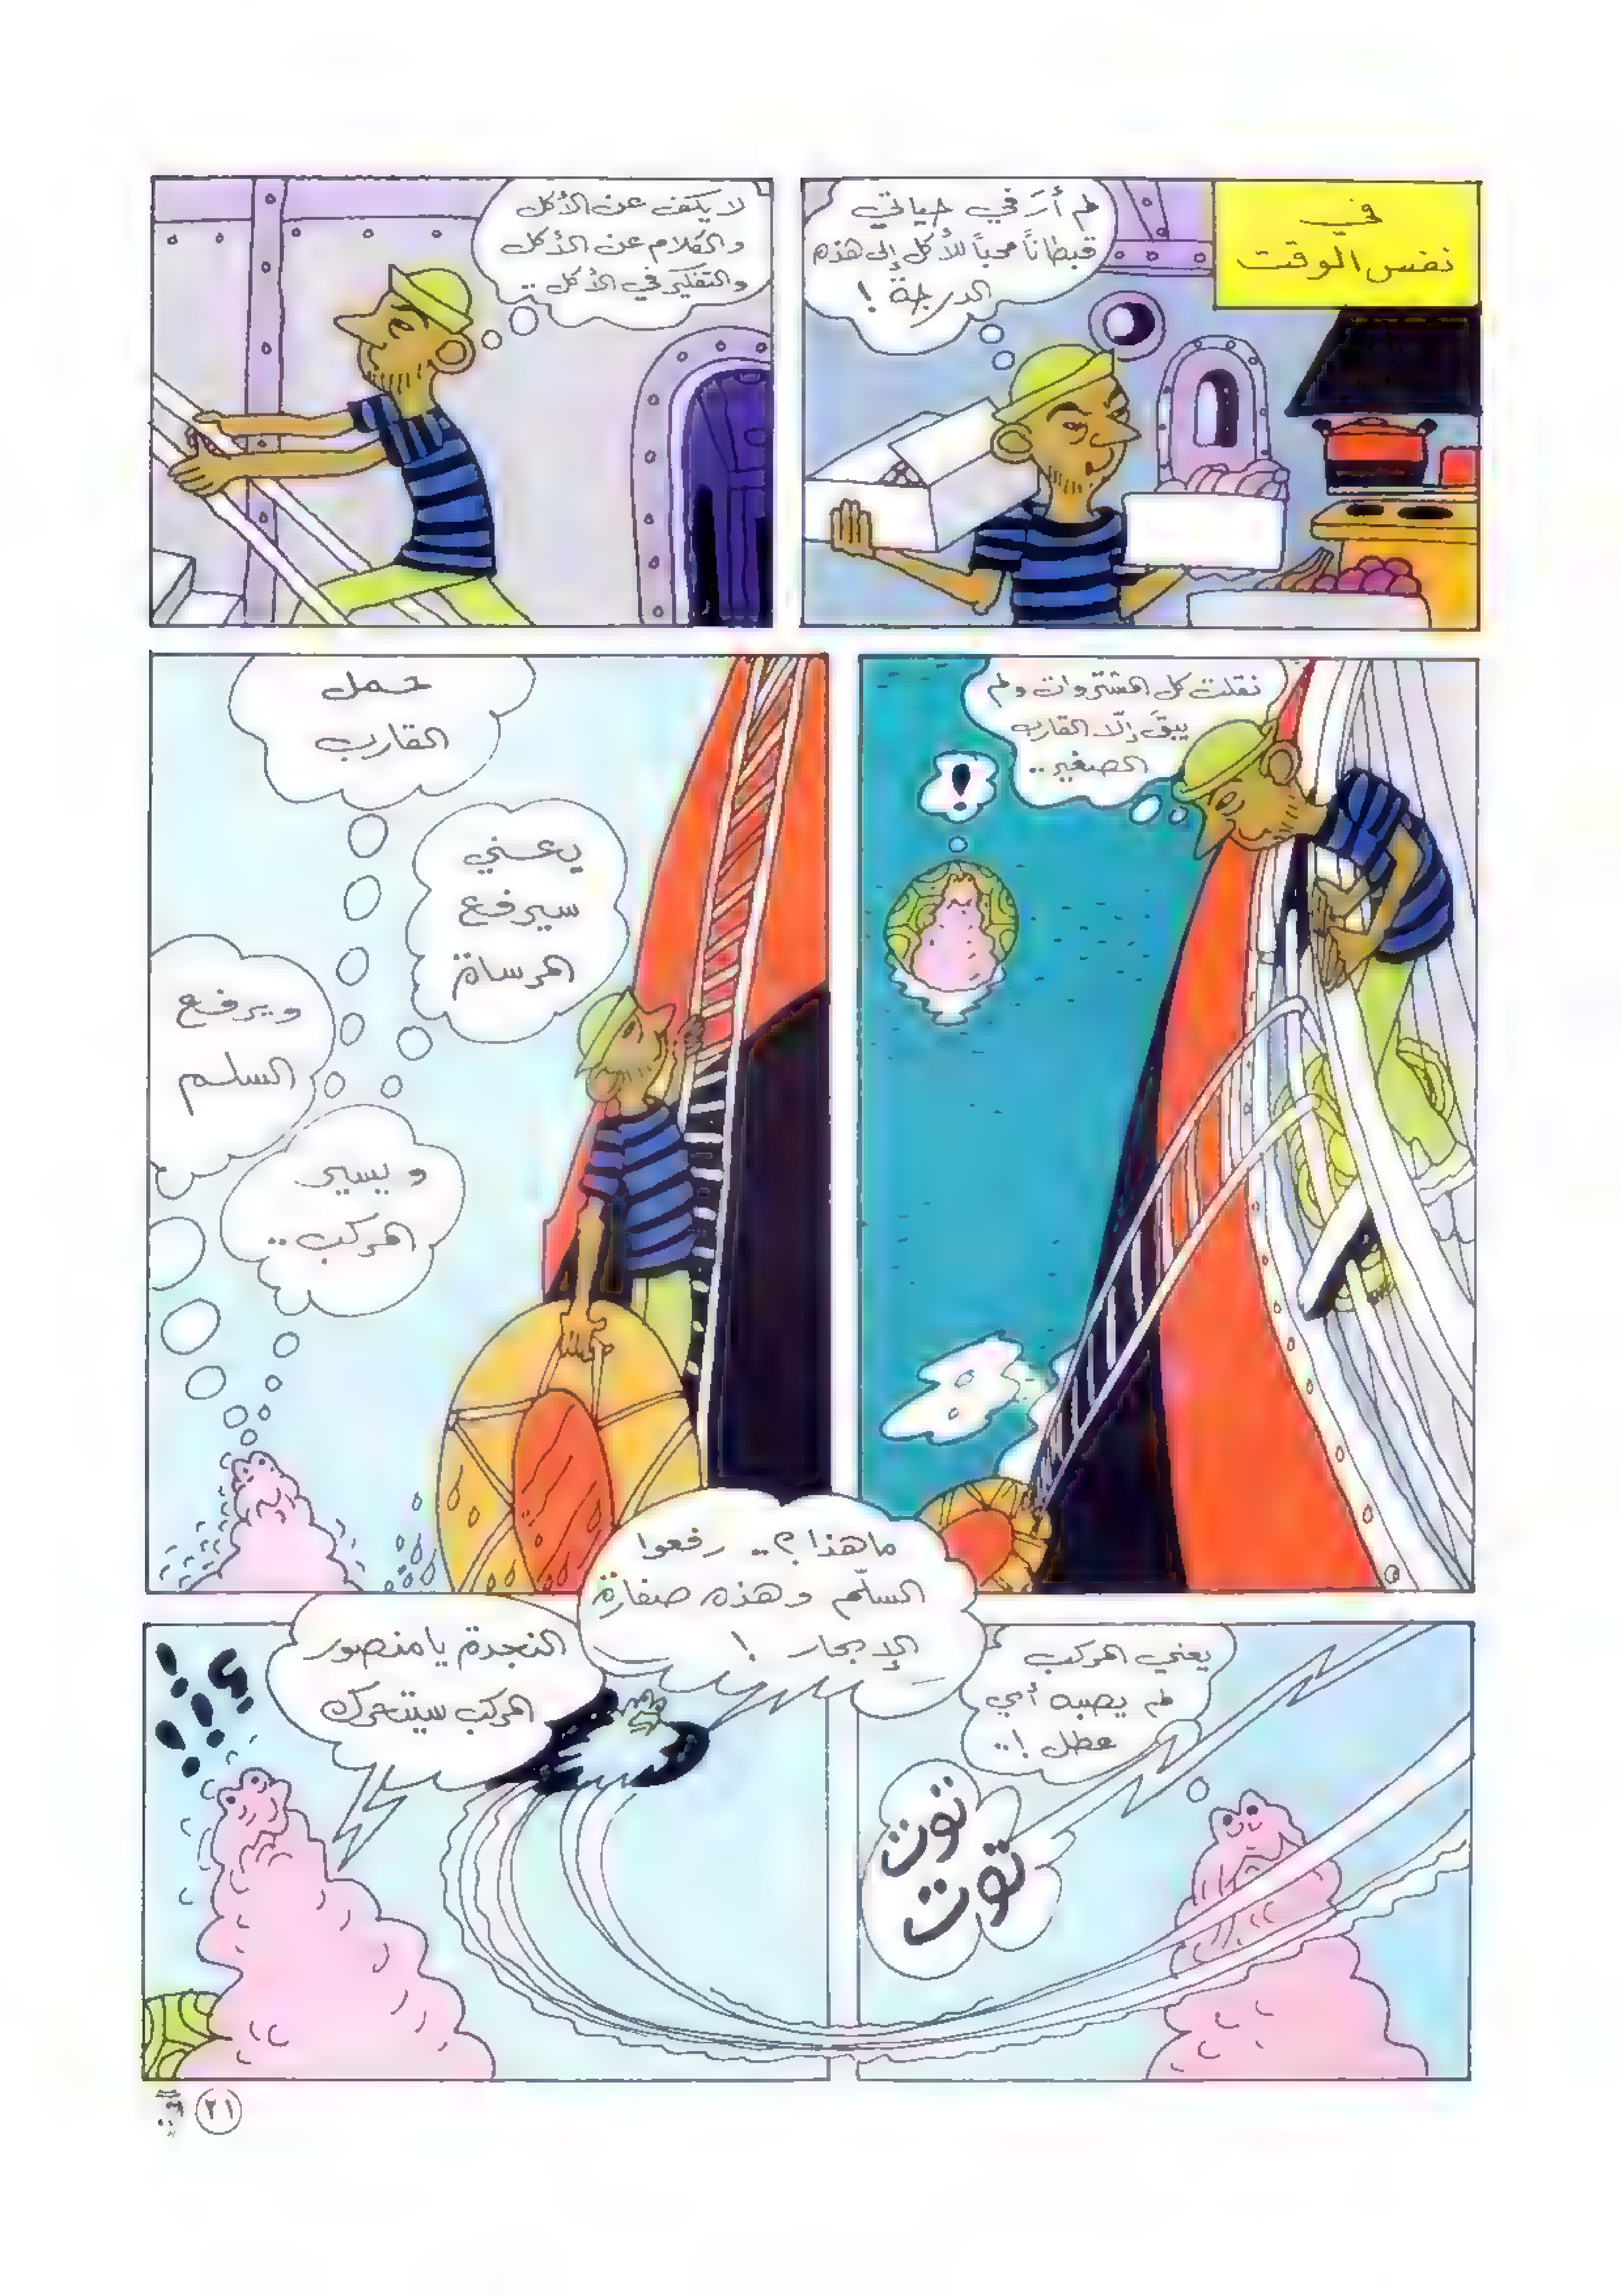 في
نفس الوقت
لم أرَ في حياتي
قبطاناً محباً للأكل إلى هذه
الدرجة !
لا يكف عن الأكل
والكلام عن الأكل
والتفكير في الأكل ..
نقلت كل المشتروات ولم
يبقَ إلّا القارب
الصغير ..
!
حمل
القارب
يعني
سيرفع
المرساة
ويرفع
السلم
ويسير
المركب ..
يعني المركب
لم يصبه أي
عطل !..
توت
توت
ما هذا ؟.. رفعوا
السلّم وهذه صفارة
الإبحار !
النجدة يا منصور
المركب سيتحرك
! ! ! ؟
٢١